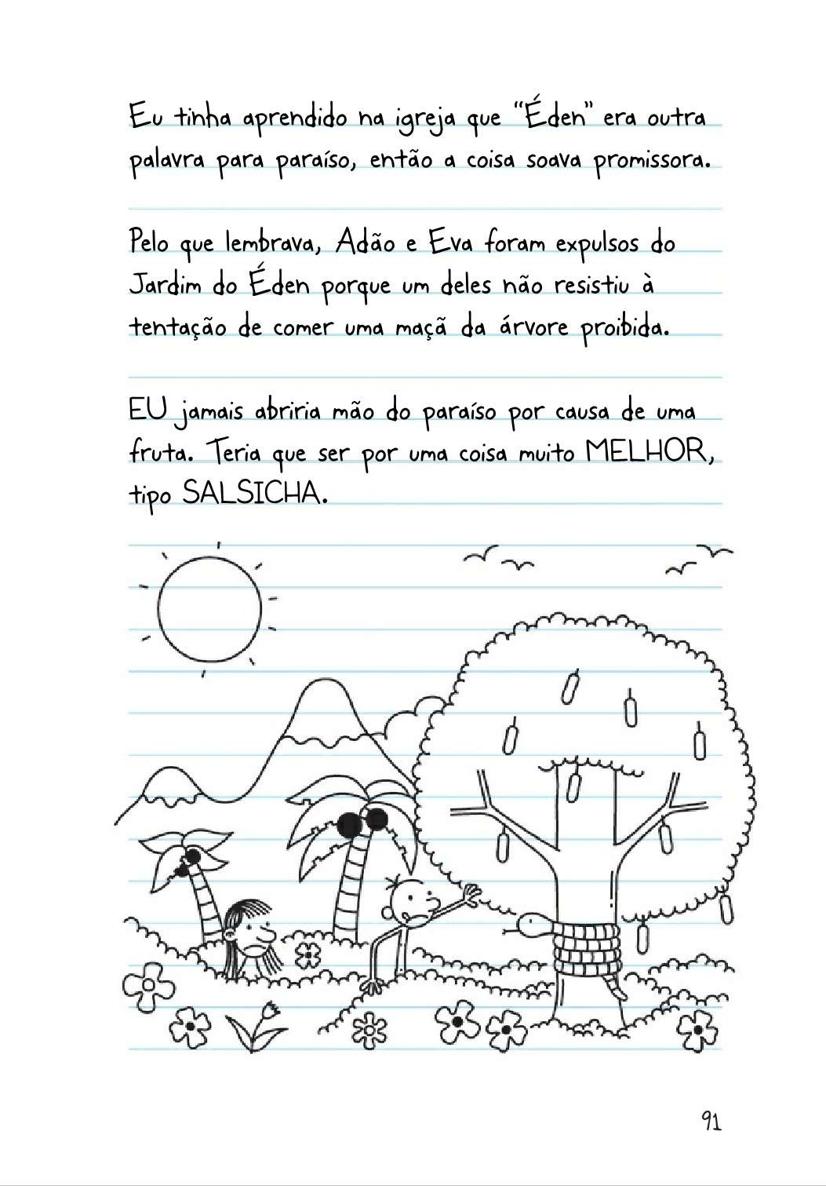 Eu tinha aprendido na igreja que “Éden” era outra
palavra para paraíso, então a coisa soava promissora.
Pelo que lembrava, Adão e Eva foram expulsos do
Jardim do Éden porque um deles não resistiu à
tentação de comer uma maçã da árvore proibida.
EU jamais abriria mão do paraíso por causa de uma
fruta. Teria que ser por uma coisa muito MELHOR,
tipo SALSICHA.
91